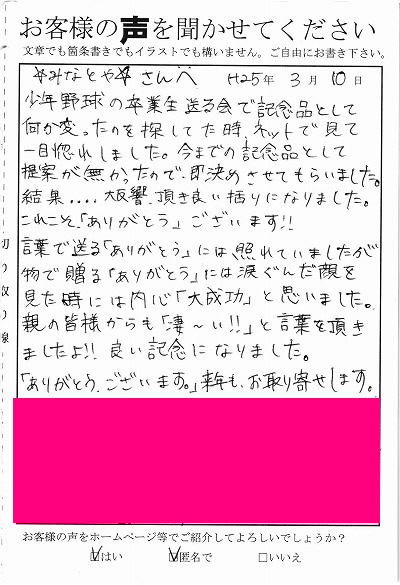 お客様の声を聞かせてください
文章でも箇条書きでもイラストでも構いません。ご自由にお書き下さい。
☆みなとや☆さんへ H25年 3月 10日
少年野球の卒業生送る会で記念品として
何か変ったのを探してた時、ネットで見て
一目惚れしました。今までの記念品として
提案が無かったので、即決めさせてもらいました。
結果....大反響、頂き良い括りになりました。
これこそ、「ありがとう」ございます!!
言葉で送る「ありがとう」には照れていましたが
物で贈る「ありがとう」には涙ぐんだ顔を
見た時には内心「大成功」と思いました。
親の皆様からも「凄〜い!!」と言葉を頂き
ましたよ!! 良い記念になりました。
「ありがとう、ございます。」来年も、お取り寄せします。
切り取り線
お客様の声をホームページ等でご紹介してよろしいでしょうか?
☑はい ☑匿名で □いいえ